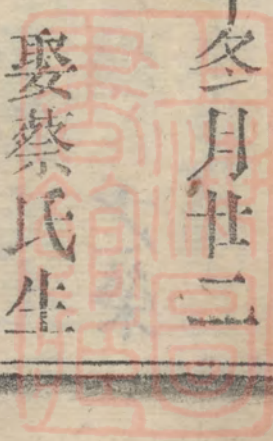 冬月廿二
娶蔡氏生